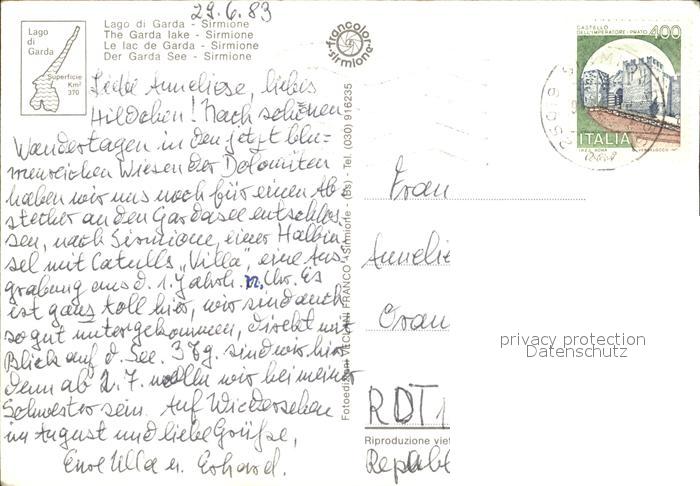 29.6.83
Lago di Garda - Sirmione
The Garda lake - Sirmione
Le lac de Garda - Sirmione
Der Garda See - Sirmione
Lago
di
Garda
Superficie
Km²
370
francolor
sirmione
Liebe Anneliese, liebes
Hildchen! Nach schönen
Wandertagen in den jetzt blu-
menreichen Wiesen der Dolomiten
haben wir uns noch für einen Ab-
stecher an den Gardasee entschlos-
sen, nach Sirmione, einer Halbin-
sel mit Catulls „Villa", eine Aus-
grabung aus d. 1. Jahrh. n. Chr. Es
ist ganz toll hier, wir sind auch
so gut untergekommen, direkt mit
Blick auf d. See. 3 Tg. sind wir hier
denn ab 2.7. wollen wir bei meiner
Schwester sein. Auf Wiedersehen
im August und liebe Grüße,
Eure Ulla u. Erhard.
Fotoedizioni VECCHINI FRANCO - Sirmione - (Bs) - Tel. (030) 916235
CASTELLO
DELL'IMPERATORE - PRATO
400
ITALIA
25019
Frau
Annelie
Oran
RDT 1
Riproduzione viet
Republ
privacy protection
Datenschutz